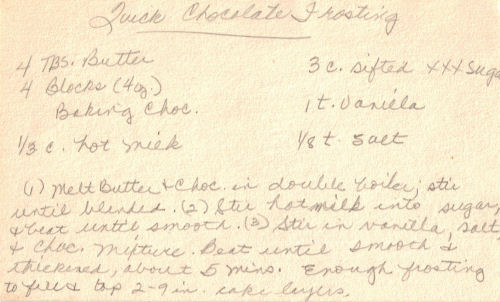 Quick Chocolate Frosting
4 TBS. Butter
4 Blocks (4oz.)
Baking Choc.
1/3 c. hot milk
3 c. sifted XXX Sugar
1 t. Vanilla
1/8 t. Salt
(1) Melt Butter & Choc. in double boiler; stir
until blended. (2) Stir hot milk into sugar,
& beat until smooth. (3) Stir in vanilla, salt
& choc. mixture. Beat until smooth &
thickened, about 5 mins. Enough frosting
to fill & top 2-9 in. cake layers.